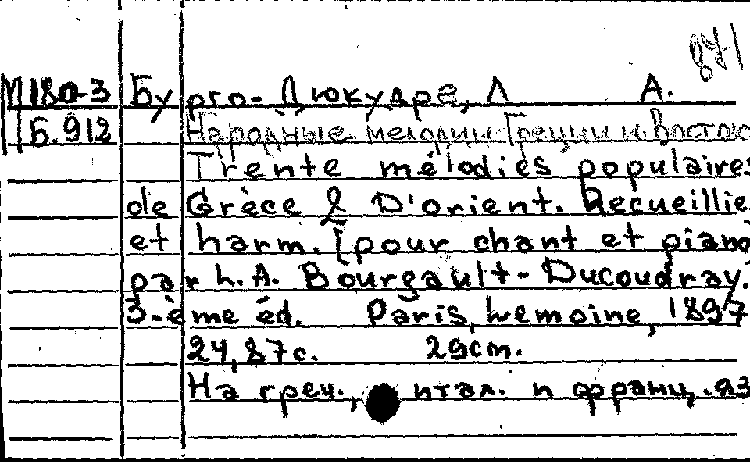 871
М180-3 Бурго-Дюкудре, Л А.
Б.912 Народные мелодии Греции и Восток
Trente mélodies populaires
de Grèce & D'orient. Recueillie
et harm. [pour chant et piano
par L.A. Bourgault-Ducoudray.
3-ème éd. Paris, Lemoine, 1897
24,87с. 29cm.
На греч., итал. и франц. яз